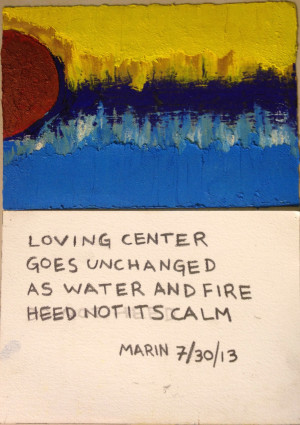 LOVING CENTER
GOES UNCHANGED
AS WATER AND FIRE
HEED NOT ITS CALM
MARIN 7/30/13